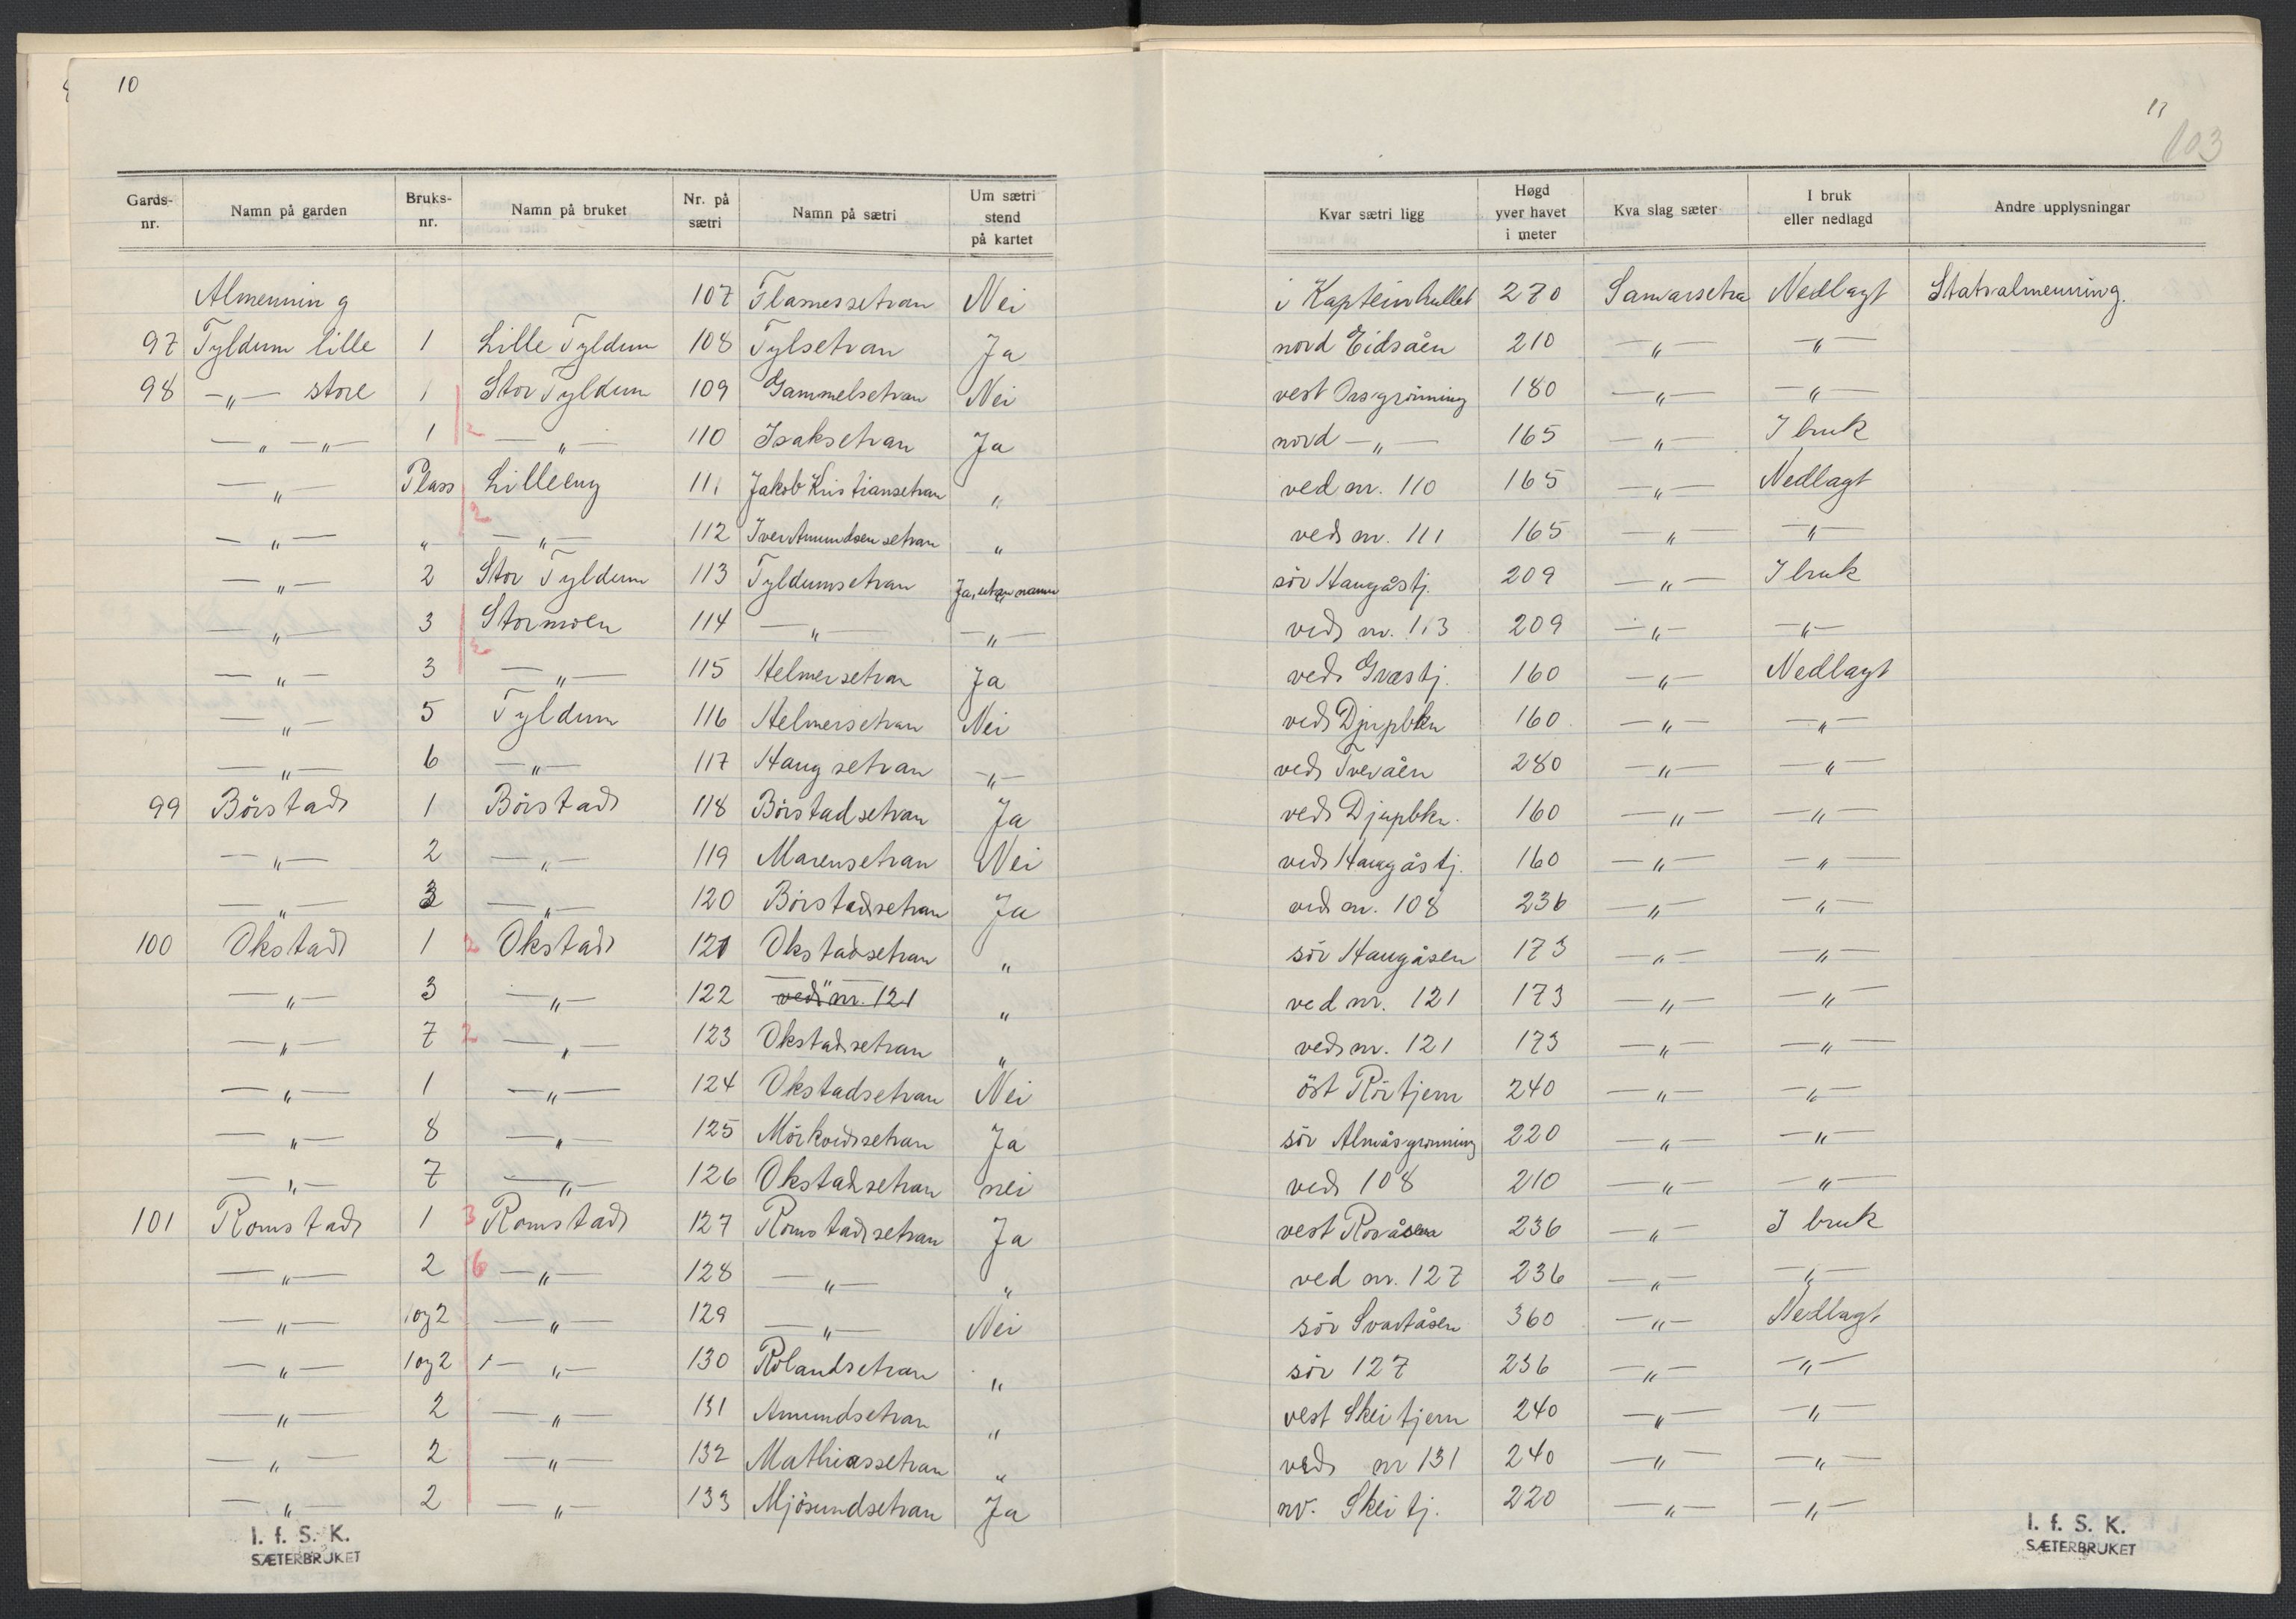 10
11
103
Gards-nr. | Namn på garden | Bruks-nr. | Namn på bruket | Nr. på sætri | Namn på sætri | Um sætri stend på kartet | Kvar sætri ligg | Høgd yver havet i meter | Kva slag sæter | I bruk eller nedlagd | Andre upplysningar
Almenning | 107 | Flamessetran | Nei | i Kapteinhullet | 270 | Samarsetra | Nedlagt | Statsalmenning.
97 | Tyldum lille | 1 | Lille Tyldum | 108 | Tylsetran | Ja | nord Eidsåen | 210 | —„— | —„—
98 | —„— store | 1 | Stor Tyldum | 109 | Gammelsetran | Nei | vest Orsgrönning | 180 | —„— | —„—
—„—„— | 1 | 2 —„— | 110 | Isaksetran | Ja | nord —„— | 165 | —„— | I bruk
—„— | Plass | Lilleeng | 111 | Jakob Kristiansetran | „ | ved nr. 110 | 165 | —„— | Nedlagt
—„— | „ | 2 —„— | 112 | Iver Amundsensetran | „ | ved nr. 111 | 165 | —„— | —„—
—„— | 2 | Stor Tyldum | 113 | Tyldumsetran | Ja, utan namn | sör Haugåstj. | 209 | —„— | I bruk
—„— | 3 | Stormoen | 114 | —„— | —„— | ved nr. 113 | 209 | —„— | —„—
—„— | 3 | 2 —„— | 115 | Helmersetran | Ja | ved Græstj. | 160 | —„— | Nedlagt
—„— | 5 | Tyldum | 116 | Helmersetran | Nei | ved Djupbkn | 160 | —„— | —„—
—„— | 6 | —„— | 117 | Haugsetran | —„— | ved Tveråen | 280 | —„— | —„—
99 | Börstad | 1 | Börstad | 118 | Börstadsetran | Ja | ved Djupbkn. | 160 | —„— | —„—
—„— | 2 | —„— | 119 | Marensetran | Nei | ved Haugåstj. | 160 | —„— | —„—
—„— | 3 | —„— | 120 | Börstadsetran | Ja | ved nr. 108 | 236 | —„— | —„—
100 | Okstad | 1 | 2 Okstad | 121 | Okstadsetran | „ | sör Haugåsen | 173 | —„— | —„—
—„— | 3 | —„— | 122 | —„— ved nr. 121 | „ | ved nr. 121 | 173 | —„— | —„—
—„— | 7 | 2 —„— | 123 | Okstadsetran | „ | ved nr. 121 | 173 | —„— | —„—
—„— | 1 | —„— | 124 | Okstadsetran | Nei | öst Rörtjern | 240 | —„— | —„—
—„— | 8 | —„— | 125 | Mörkvedsetran | Ja | sör Almåsgrönning | 220 | —„— | —„—
—„— | 7 | —„— | 126 | Okstadsetran | nei | ved 108 | 210 | —„— | —„—
101 | Romstad | 1 | 3 Romstad | 127 | Romstadsetran | Ja | vest Roråsen | 236 | —„— | I bruk
—„— | 2 | 6 —„— | 128 | —„— | „ | ved nr. 127 | 236 | —„— | —„—
—„— | 1 og 2 | —„— | 129 | —„— | Nei | sör Svartåsen | 360 | —„— | Nedlagt
—„— | 1 og 2 | —„— | 130 | Rolandsetran | „ | sör 127 | 236 | —„— | —„—
—„— | 2 | —„— | 131 | Amundsetran | „ | vest Skeitjern | 240 | —„— | —„—
—„— | 2 | —„— | 132 | Mathiassetran | „ | ved nr 131 | 240 | —„— | —„—
—„— | 2 | —„— | 133 | Mjösundsetran | Ja | nv. Skeitj. | 220 | —„— | —„—
I. f. S. K.
SÆTERBRUKET
I. f. S. K.
SÆTERBRUKET